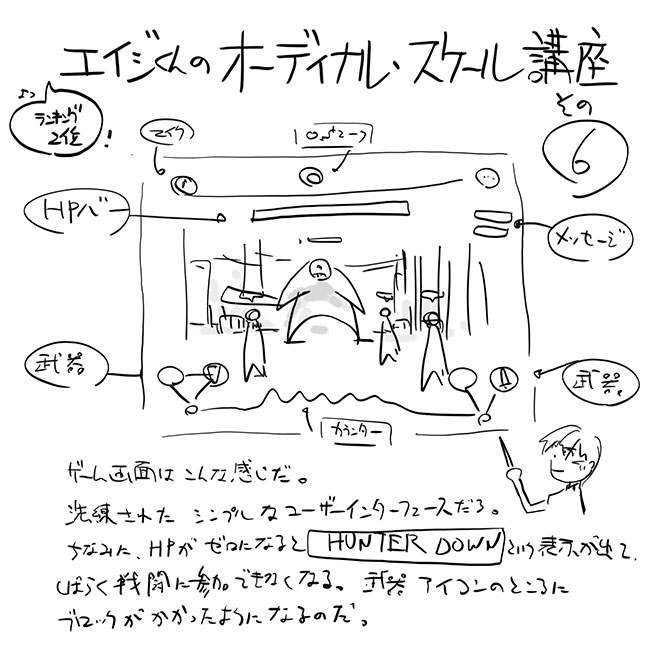 エイジくんのオーディナル・スケール講座
その
6
ランキング
2位
!
マイク
HPバー
メッセージ
武器
武器
カウンター
ゲーム画面はこんな感じだ。
洗練されたシンプルなユーザーインターフェースだろ。
ちなみに、HPがゼロになると HUNTER DOWN という表示が出て、
しばらく戦闘に参加できなくなる。武器アイコンのところに
ブロックがかかったようになるのだ。